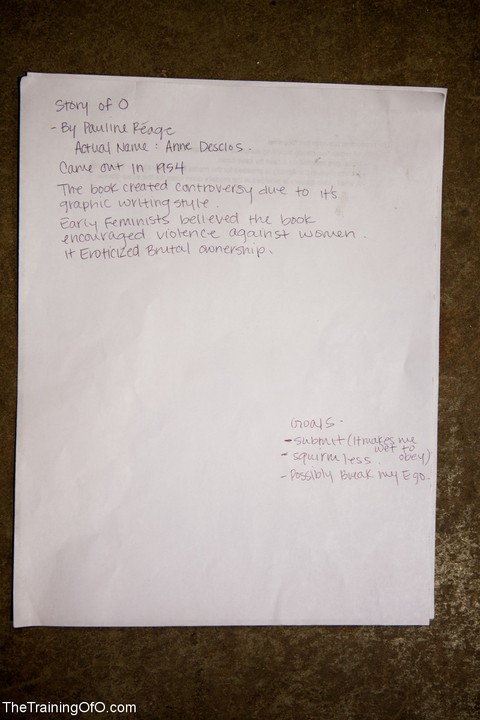 Story of O
- By Pauline Réage
Actual Name : Anne Desclos.
Came out in 1954
The book created controversy due to it's
graphic writing style.
Early Feminists believed the book
encouraged violence against women.
It Eroticized Brutal ownership.
Goals.
- submit (it makes me
wet to
- squirm less. obey)
- Possibly Break my Ego.
TheTrainingOfO.com